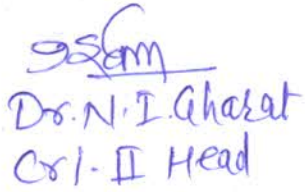 Dr. N. I. Gharat
Cr1-II Head